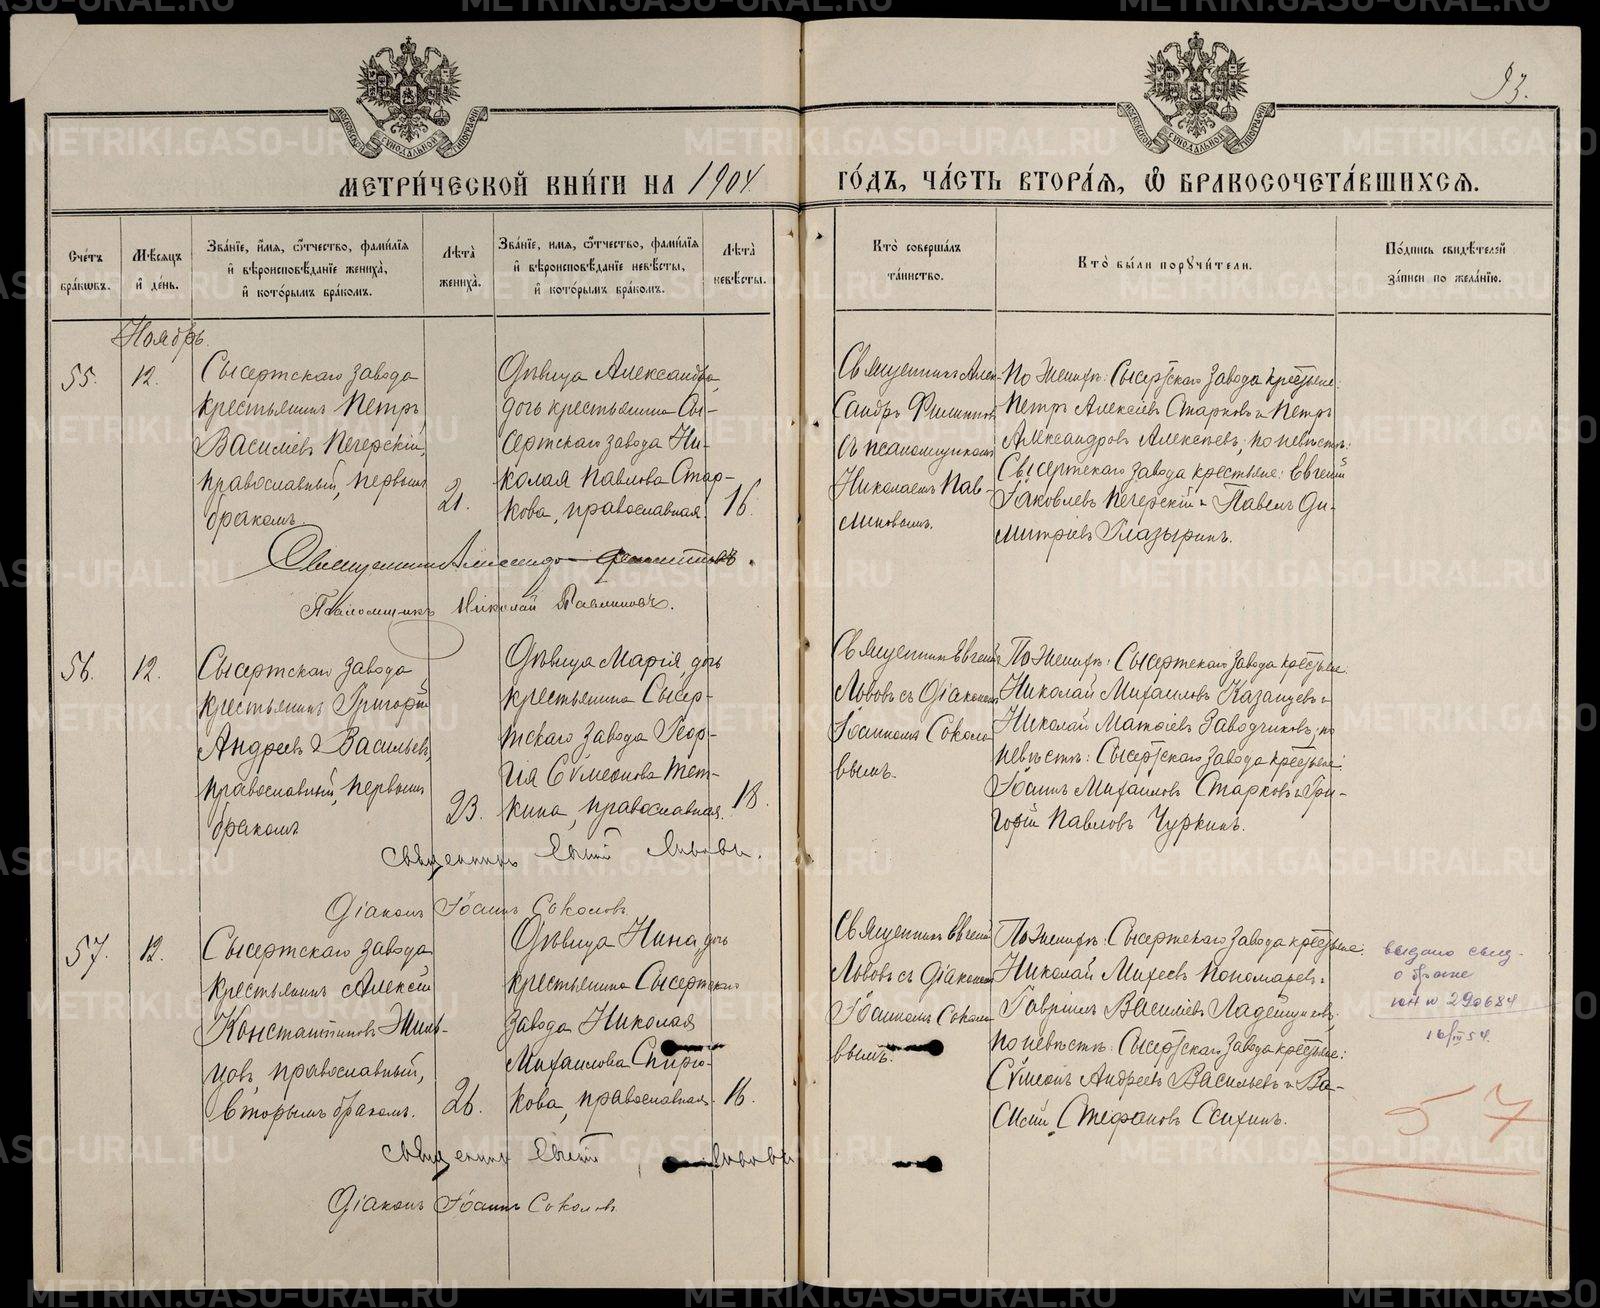 93.
МЕТРИ́ЧЕСКОЙ КНИ́ГИ НА 1904 ГО́ДЪ, ЧА́СТЬ ВТОРА́Я, Ѽ БРАКОСОЧЕТА́ВШИХСЯ.
Сче́тъ бра́кѡвъ.
Мѣ́сяцъ и҆ де́нь.
Зва́нїе, и҆́мя, ѻ҆́тчество, фами́лїя и҆ вѣроисповѣ́данїе жениха̀, и҆ кото́рымъ бра́комъ.
Лѣта̀ жениха̀.
Зва́нїе, и҆мя, ѻ҆́тчество, фами́лїя и҆ вѣроисповѣ́данїе невѣ́сты, и҆ кото́рымъ бра́комъ.
Лѣта̀ невѣ́сты.
Кто̀ соверша́лъ та́инство.
Кто̀ бы́ли порꙋчи́тели.
По́дпись свидѣ́телей за́писи по жела́нїю.
Ноябрь.
55.
12.
Сысертскаго завода
крестьянинъ Петръ
Василіевъ Печерскій,
православный, первымъ
бракомъ.
21.
Дѣвица Александра,
дочь крестьянина Сы-
сертскаго завода Ни-
колая Павлова Стар-
кова, православная.
16.
Священникъ Алек-
сандръ Филиппов
съ псаломщикомъ
Николаемъ Пав-
линовымъ.
По женихѣ: Сысертскаго завода крестьяне:
Петръ Алексѣевъ Старковъ и Петръ
Александровъ Алексѣевъ; по невѣстѣ:
Сысертскаго завода крестьяне: Евгеній
Іаковлевъ Печерскій и Павелъ Ди-
митріевъ Глазыринъ.
Священникъ Александр Филипповъ.
Псаломщикъ Николай Павлиновъ.
56.
12.
Сысертскаго завода
крестьянинъ Григорій
Андреевъ Васильевъ,
православный, первымъ
бракомъ
23.
Дѣвица Марія, дочь
крестьянина Сысер-
тскаго завода Геор-
гія Сѵмеонова Тет-
кина, православная.
18.
Священникъ Евгеній
Львовъ съ Діакономъ
Іоанномъ Соколо-
вымъ.
По женихѣ: Сысертскаго завода крестьяне:
Николай Михаиловъ Казанцевъ и
Николай Матѳіевъ Заводчиковъ; по
невѣстѣ: Сысертскаго завода крестьяне:
Іоаннъ Михаиловъ Старковъ и Гри-
горій Павловъ Чуркинъ.
Священникъ Евгеній Львовъ.
Діаконъ Іоаннъ Соколовъ.
57.
12.
Сысертскаго завода
крестьянинъ Алексій
Константиновъ Жиль-
цовъ, православный,
вторымъ бракомъ.
26.
Дѣвица Нина, дочь
крестьянина Сысертскаго
завода Николая
Михаилова Спирю-
кова, православная.
16.
Священникъ Евгеній
Львовъ съ Діакономъ
Іоанномъ Соколо-
вымъ.
По женихѣ: Сысертскаго завода крестьяне:
Николай Михеевъ Пономаревъ и
Гавріилъ Василіевъ Ладейщиковъ;
по невѣстѣ: Сысертскаго завода крестьяне:
Сѵмеонъ Андреевъ Васильевъ и Ва-
силій Стефановъ
выдано свид.
о браке
№ 290684
16/III 54.
57
Священникъ Евгеній Львовъ
Діаконъ Іоаннъ Соколовъ
METRIKI.GASO-URAL.RU